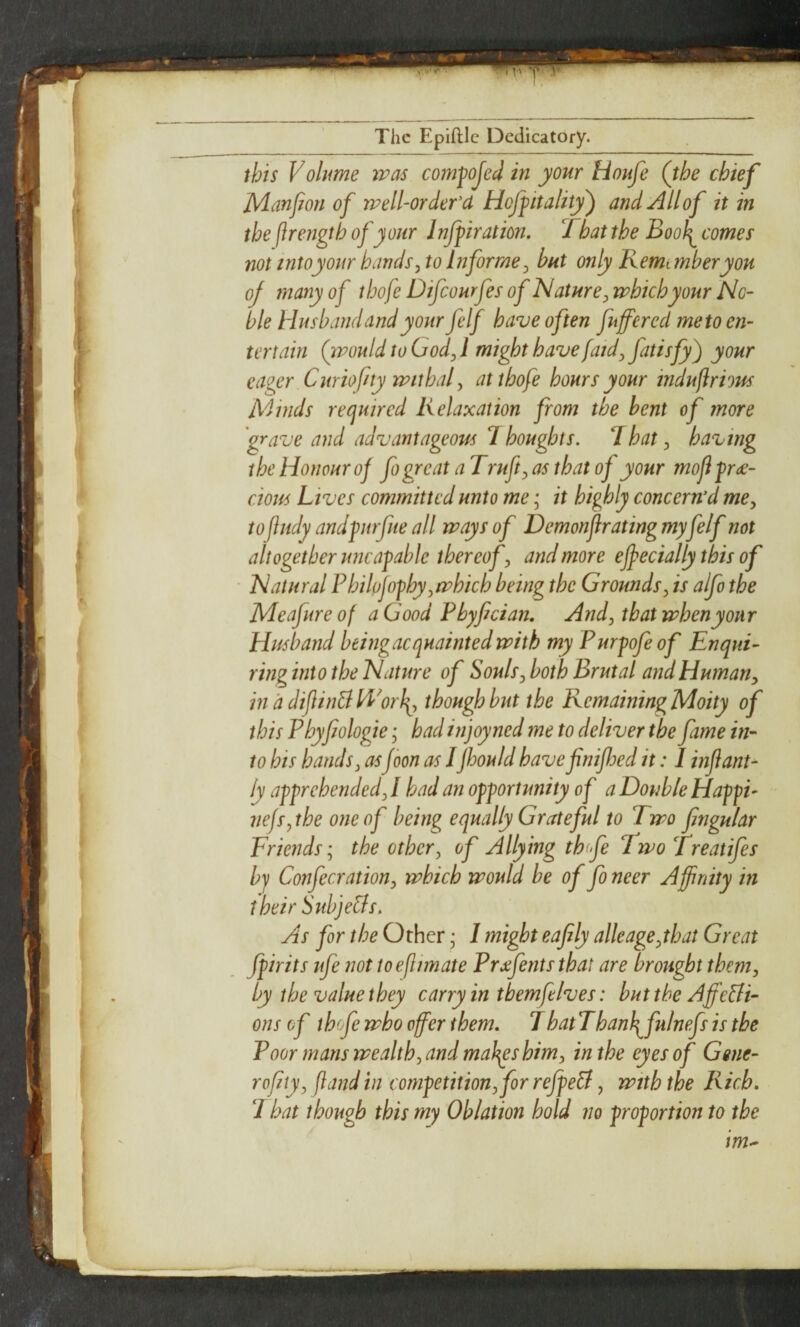 The Epiſtle Dedicatory.
this Volume was compoſed in your Houſe (the chief
Manſion of well-order'd Hoſpitality) and All of it in
the ſtrength of your Inſpiration. That the Book comes
not into your hands, to Informe, but only Remember you
of many of thoſe Diſcourſes of Nature, which your No-
ble Husband and your ſelf have often ſuffered me to en-
tertain (would to God, I might have ſaid, ſatisfy) your
eager Curioſity withal, at thoſe hours your induſtrious
Minds required Relaxation from the bent of more
grave and advantageous Thoughts. That, having
the Honour of ſo great a Truſt, as that of your moſt præ-
cious Lives committed unto me; it highly concern'd me,
to ſtudy and purſue all ways of Demonſtrating my ſelf not
altogether uncapable thereof, and more eſpecially this of
Natural Philoſophy, which being the Grounds, is alſo the
Meaſure of a Good Phyſician. And, that when your
Husband being acquainted with my Purpoſe of Enqui-
ring into the Nature of Souls, both Brutal and Human,
in a diſtinct Work, though but the Remaining Moity of
this Phyſiologie; had injoyned me to deliver the ſame in-
to his hands, as ſoon as I ſhould have finiſhed it: I inſtant-
ly apprehended, I had an opportunity of a Double Happi-
neſs, the one of being equally Grateful to Two ſingular
Friends; the other, of Allying thoſe Two Treatiſes
by Conſecration, which would be of ſo neer Affinity in
their Subjects.
As for the Other; I might eaſily alleage, that Great
ſpirits uſe not to eſtimate Præſents that are brought them,
by the value they carry in themſelves: but the Affecti-
ons of thoſe who offer them. That Thankfulneſs is the
Poor mans wealth, and makes him, in the eyes of Gene-
roſity, ſtand in competition, for reſpect, with the Rich.
That though this my Oblation hold no proportion to the
im-